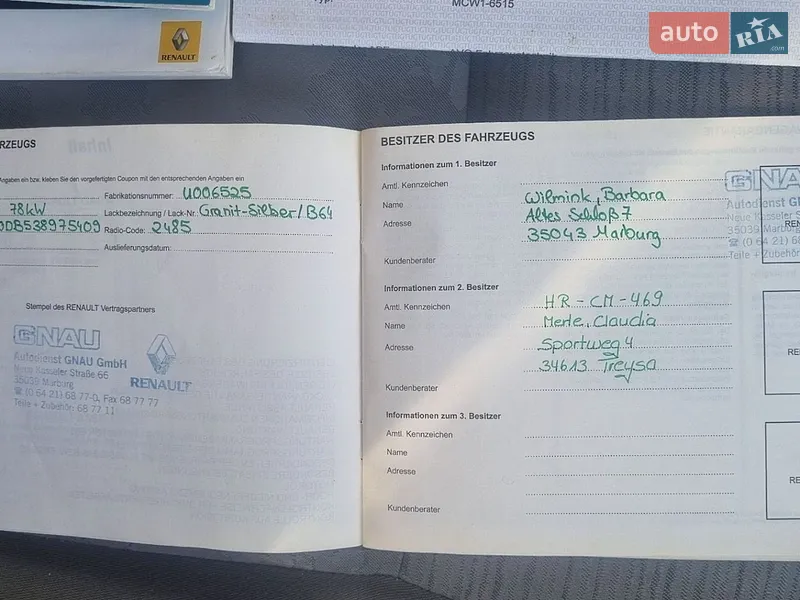 Typ:
MCW1-6515
auto RIA .com
RENAULT
RZEUGS
Angaben ein bzw. kleben Sie den vorgefertigten Coupon mit den entsprechenden Angaben ein
Fabrikationsnummer: U006525
78kW Lackbezeichnung / Lack-Nr. Granit-Silber/B64
0DB538975409 Radio-Code: 2485
Auslieferungsdatum:
Stempel des RENAULT Vertragspartners
GNAU
Autodienst GNAU GmbH
Neue Kasseler Straße 66
35039 Marburg
☎ (0 64 21) 68 77-0, Fax 68 77 77
Teile + Zubehör: 68 77 11
RENAULT
BESITZER DES FAHRZEUGS
Informationen zum 1. Besitzer
Amtl. Kennzeichen
Name Wilmink, Barbara
Adresse Altes Schloß 7
35043 Marburg
Kundenberater
GNA
Autodienst GN
Neue Kasseler S
35039 Marburg
☎ (0 64 21) 68
Teile + Zubehör
REN
Informationen zum 2. Besitzer
Amtl. Kennzeichen HR-CM-469
Name Merle, Claudia
Adresse Sportweg 4
34613 Treysa
Kundenberater
RE
Informationen zum 3. Besitzer
Amtl. Kennzeichen
Name
Adresse
Kundenberater
RE